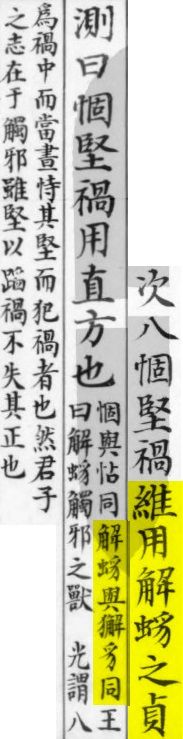 次八⿰忄固堅禍維用解⿰虫豸之貞
測曰⿰忄固堅禍用直方也
⿰忄固與怙同解⿰虫豸與獬豸同王
曰解⿰虫豸觸邪之獸 光謂八
爲禍中而當晝恃其堅而犯禍者也然君子
之志在于觸邪雖堅以蹈禍不失其正也